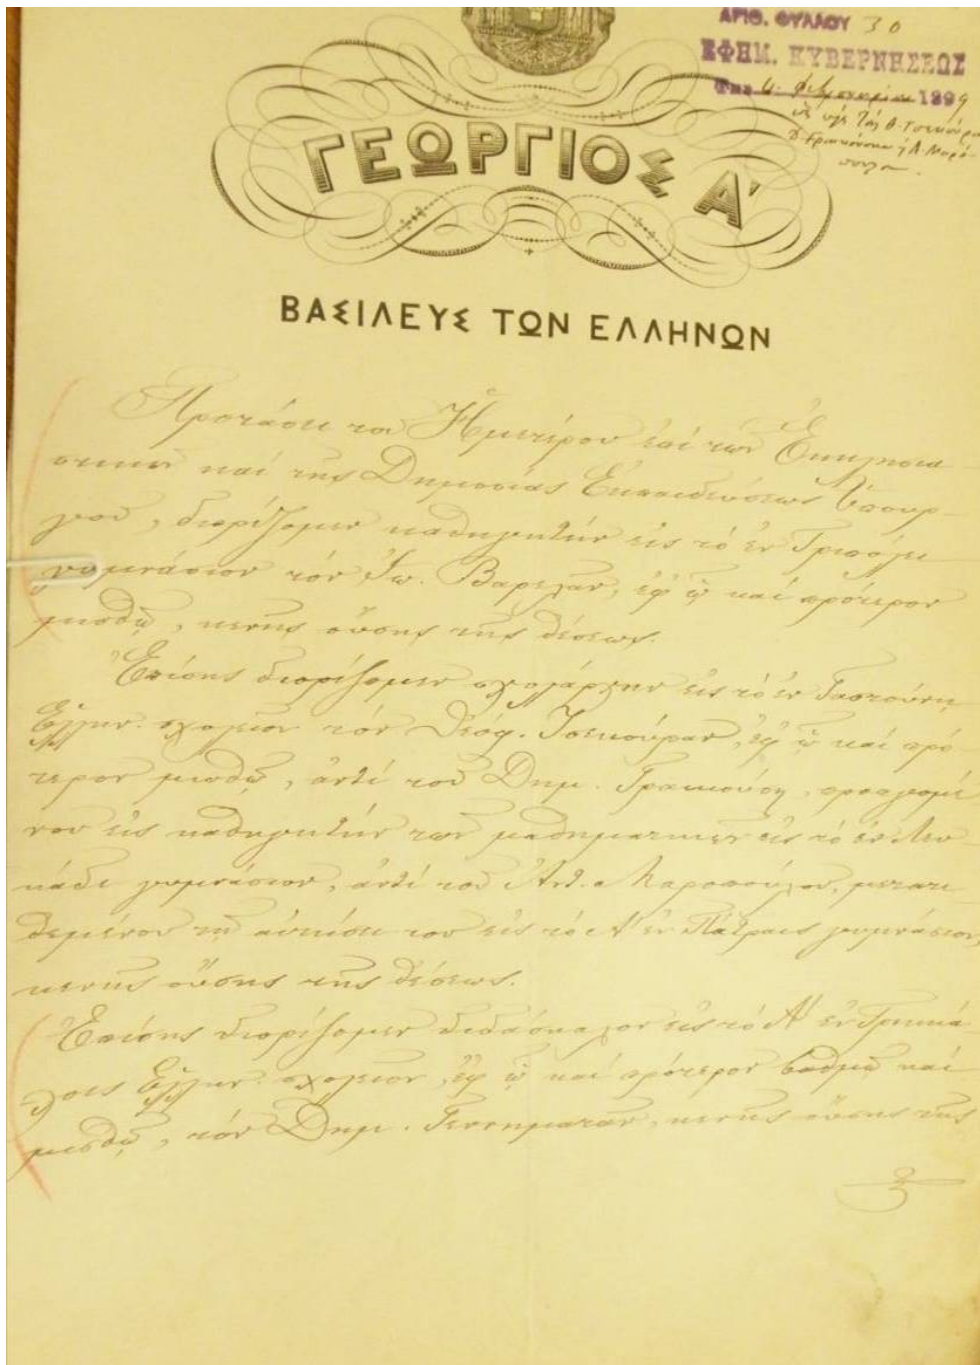 ΑΡΙΘ. ΦΥΛΛΟΥ 30
ΕΦΗΜ. ΚΥΒΕΡΝΗΣΕΩΣ
Της 4 Φεβρουαρίου 1899
ΓΕΩΡΓΙΟΣ Α'
ΒΑΣΙΛΕΥΣ ΤΩΝ ΕΛΛΗΝΩΝ
Προτάσει του Ἡμετέρου ἐπί των Ἐκκλησια
στικων καί της Δημοσίας Εκπαιδεύσεως Υπουρ-
γού, διορίζομεν καθηγητήν εις τό εν Τριπόλει
γυμνάσιον τόν Ιω. Βαρελάν, εφ ᾧ καί πρότερον
μισθῷ, κενής ούσης της θέσεως.
Ἐπίσης διορίζομεν σχολάρχην εις τό εν Γαστούνη
Ελλην. σχολείον τόν Θεόφ. Τσεκούραν, εφ ᾧ καί πρό-
τερον μισθῷ, ἀντί του Δημ. Γρακούση, προαγομέ
νου εις καθηγητήν των μαθηματικων εις τό εν Λευ-
κάδι γυμνάσιον, ἀντί του Ἀντ. Μαροπούλου, μετατι
θεμένου τη αιτήσει του εις τό Α' εν Πάτραις γυμνάσιον,
κενής ούσης της θέσεως.
Ἐπίσης διορίζομεν διδάσκαλον εις τό Α' εν Τρικκά
λοις Ελλην. σχολείον, εφ ᾧ καί πρότερον βαθμῷ καί
μισθῷ, τόν Δημ. Γεννηματάν, κενής ούσης της